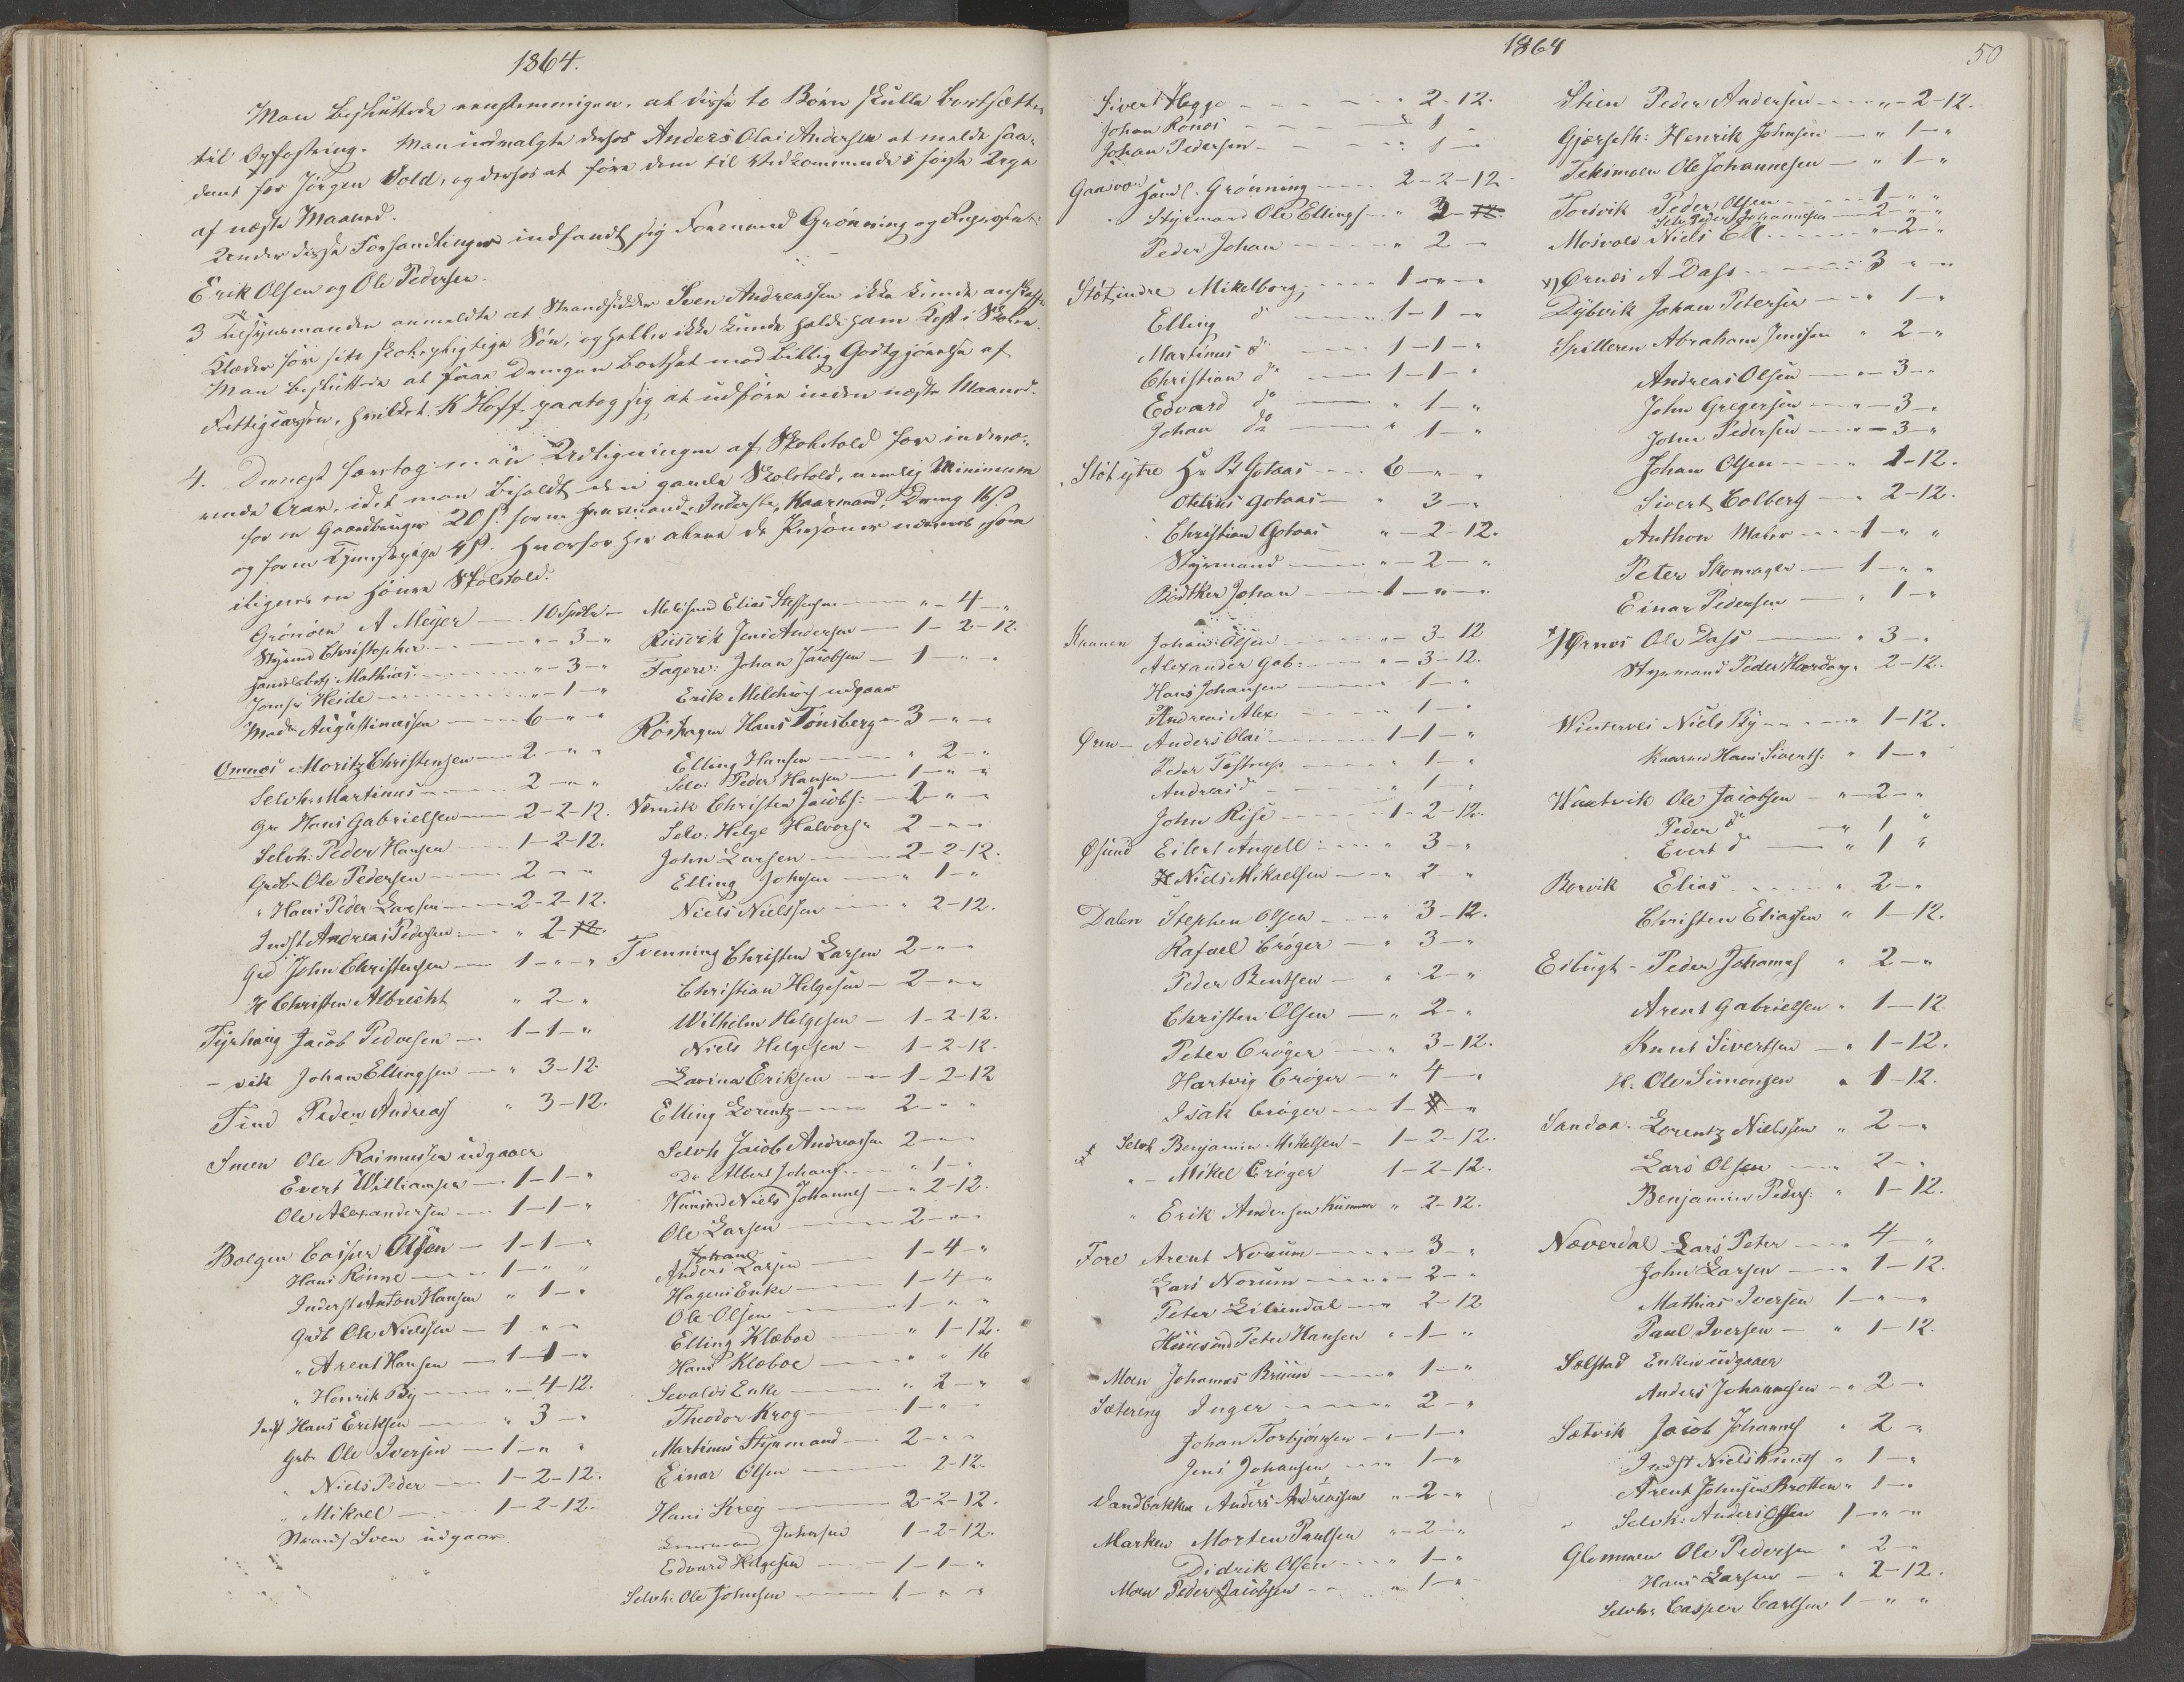 1864.
Man besluttede eenstemmigen, at disse to Børn skulle bortsættes
til Opfostring. Man udvalgte derhos Anders Olai Andersen at melde saa-
dant for Jørgen Vold, og derhos at føre dem til Vedkommende i første Uge
af næste Maaned.
Under disse Forhandlinger indfandt sig Formand Grønning og
Erik Olsen og Ole Pedersen.
3 Tilsynsmanden anmeldte at Strandsidder Sven Andreassen ikke kunde anskaffe
Klæder for sin skolepligtige Søn, og heller ikke kunde holde ham Kost i Skolen.
Man besluttede at faae Drengen bortsat mod billig Godtgjørelse af
Fattigcassen, hvilket K Hoff paatog sig at udføre inden næste Maaned.
4. Dernæst foretog man Udligningen af Skoletold for indevæ-
rende Aar, idet man beholdt den gamle Skoletold, nemlig Minimum
for en Gaardbruger 20 ß. for en Huusmand, Inderste, Kaarmand, Dreng 16 ß
og for en Tjenestepige 4 ß. Hvorfor her alene de Personer nævnes som
ilignes en høiere Skoletold.
Grønøen A Meyer — 10 Spdlr —
Styrmd Christopher — " — 3 — "
Handelsbetj Mathias — " — 3 — "
Jomfr Heide — " — 1 — "
Mad. Augustinussen — 6 — " — "
Omnæs Moritz Christensen — 2 — " — "
Selvh. Martinus — 2 — " — "
Gr Hans Gabrielsen — 2 - 2 - 12.
Selvh: Peder Hansen — 1 - 2 - 12.
Grdbr Ole Pedersen — 2 — " — "
" Hans Peder Larsen — 2 - 2 - 12.
Indst Andreas Pedersen — " 2 - 12.
Grd John Christensen — 1 — " — "
H Christen Albricht " 2 — "
Tyrhaug Jacob Pedersen — 1 — 1 — "
- vik Johan Ellingsen — " 3 - 12.
Find Peder Andreas " 3 - 12.
Smen Ole Rasmussen udgaaer
Evert Williamsen — 1 — 1 — "
Ole Alexandersen — 1 — 1 — "
Bolgen Casper Olsen — 1 — 1 — "
Hans Rønne — 1 — " "
Inderst Anton Hansen " 1 — "
Grdb Ole Nielsen — 1 " — "
" Arent Hansen — 1 — 1 — "
" Henrik By — " — 4 - 12.
Indst Hans Eriksen — " 3 — "
Grb. Ole Iversen — 1 — " "
" Niels Peder — 1 - 2 - 12.
" Mikael — 1 - 2 - 12.
Strands Sven udgaar
Meløsund Elias Steffensen — " — 4 — "
Riisvik Jens Andersen — 1 - 2 - 12.
Fagerv: Johan Jacobsen — 1 — " — "
Erik Melchiors udgaar
Røshagen Hans Tønsberg — 3 — " — "
Elling Hansen — " 2 — "
Selv: Peder Hansen — 1 — " — "
Værnik Christen Jacobs: — 2 — " — "
Selv: Helge Halvors. 2 — " — "
John Larsen — 2 - 2 - 12.
Elling Johnsen — " 1 — "
Niels Nielssen — " 2 - 12.
Tvenning Christen Larsen 2 — " — "
Christian Helgesen — 2 — " — "
Wilhelm Helgesen — 1 - 2 - 12.
Niels Helgesen — 1 - 2 - 12.
Lavina Eriksen — 1 - 2 - 12
Elling Lorentz — 2 — " — "
Selvh Jacob Andreassen 2 — " — "
Do Albert Johans. — " 1 — "
Huusmd Niels Johannes — " 2 - 12.
Ole Larsen — 2 — " — "
Johan
Anders Larsen — 1 — 4 — "
Hagens Enke — 1 — 4 — "
Ole Olsen — 1 — " "
Elling Klæboe — " 1 - 12.
Hans Klæboe — " " 16
Sevalds Enke — " 2 — "
Theodor Krog — 1 — " — "
Martinus Styrmand — 2 — " — "
Einar Olsen — 2 - 12.
Hans Krey — 2 - 2 - 12.
Johnsen 1 - 2 - 12.
Edvard Helgesen — 1 — 1 — "
Selvh: Ole Johnsen — 1 — " — "
1864
50
Sivert Hegge — 2 - 12.
Johan Rønes — 1 —
Johan Pedersen — 1 — "
Gaasvær Handl. Grønning — 2 - 2 - 12
" Styrmand Ole Ellings — " 3 - 12.
Peder Johan — " 2 — "
Støt indre Mikelborg — 1 — " — "
Elling do — 1 — 1 — "
Martinus do — 1 — 1 — "
Christian do — 1 — 1 — "
Edvard do — " 1 — "
Johan do — " 1 — "
Støt ytre Hr P Gotaas — 6 — " — "
Otelius Gotaas — " 3 — "
Christian Gotaas " — 2 - 12.
Styrmand — " — 2 — "
Bødtker Johan — 1 — " — "
Kunnen Johan Olsen — " — 3 - 12
Alexander Gab: — " — 3 - 12.
Hans Johansen — " 1 — "
Andreas Alex — " 1 — "
Øren — Anders Olai — 1 — 1 — "
Peder Tostrup — " 1 — "
Andreas do — " 1 — "
John Rise — 1 - 2 - 12.
Øsund Eilert Angell — " 3 — "
H Niels Mikaelsen — " 2 — "
Dalen Stephen Olsen — " 3 - 12.
Rafael Crøger — " 3 — "
Peder Bentsen — " 2 — "
Christen Olsen — " 2 — "
Peter Crøger — " 3 - 12.
Hartvig Crøger — " 4 — "
Isak Crøger — 1 - 4 — "
Selvh Benjamin Mikelsen — 1 - 2 - 12.
" — Mikel Crøger 1 - 2 - 12.
" Erik Andersen Kunnen " 2 - 12.
Fore Arent Norum — " — 3 — "
Lars Norum — " — 2 — "
Peter Lillendal — " 2 - 12
Huusmd Peter Hansen " — 1 — "
Moen Johannes Bruun — " 1 — "
Sætereng Inger — " 2 — "
Johan Torbjørnsen — " 1 — "
Jens Johansen — " 1 — "
Sandbakken Anders Andreassen " — 2 — "
Marken Morten Paulsen " — 2 — "
Didrik Olsen — " 1 — "
Moen Peder Jacobsen — " 1 — "
Stien Peder Andersen — " — 2 - 12.
Gjerseth: Henrik Johnsen — " 1 — "
Teksmoen Ole Johannesen — " 1 — "
Torsvik Peder Olsen — 1 — " — "
Selv. Peder Johannesen — 2 — " — "
Mosvold Niels Ell — " — 2 — "
x) Ørnæs A Dass — 3 " — "
Dybvik Johan Petersen — " 1 — "
Spilleren Abraham Jenssen " 2 — "
Andreas Olsen — " — 3 — "
John Gregersen — " — 3 — "
John Pedersen — " — 3 — "
Johan Olsen — " 1 - 12.
Sivert Colberg — " 2 - 12.
Anthon Maler — 1 — " "
Peter Skomager — 1 — " "
Einar Pedersen — " 1 — "
x) Ørnes Ole Dass — " 3 — "
Styrmand Peder " 2 - 12.
Vinterves Niels By — " 1 - 12.
Kaarmd Hans Siverts: " 1 — "
Waatvik Ole Jacobsen — " — 2 — "
Peder do — " 1 "
Evert do — " 1 "
Borvik Elias — " 2 — "
Christen Eliassen " 1 - 12.
Eidbugt — Peder Johannes " 2 — "
Arent Gabrielsen " 1 - 12
Knut Sivertsen — " 1 - 12.
H. Ole Simonsen " 1 - 12.
Sandaa. Lorentz Nielssen " 2 — "
Lars Olsen — 2 — "
Benjamin Peders: " 1 - 12.
Næverdal Lars Peter — " 4 — "
John Larsen — " 1 - 12.
Mathias Iversen 1 — " — "
Paul Iversen — " 1 - 12.
Selstad Enken udgaaer
Anders Johannesen — " 2 — "
Sætvik Jacob Johannes " 2 — "
Indst Niels Knuts " 1 — "
Arent Johnsen Brotten " 1 — "
" Selvh: Anders Olsen 1 — " — "
Glommen Ole Pedersen " 2 — "
Hans Larsen — " 2 - 12.
Selvh: Casper Carlsen 1 — " "